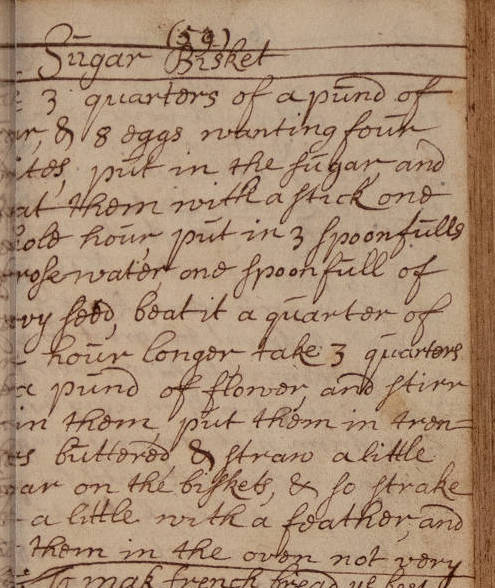 (59)
Sugar Bisket
3 quarters of a pund of
ar, & 8 eggs wanting four
ites, put in the sugar, and
at them with a stick one
hole hour, put in 3 spoonfulls
rose water, one spoonfull of
vy seed, beat it a quarter of
hour longer take 3 quarters
a pund of flower, and stirr
in them, put them in tren=
es buttered & straw a little
ar on the biskets, & so strake
a little with a feather, and
them in the oven not very
To mak french bread ye best